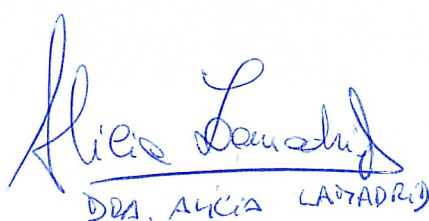 Alicia Lamadrid
DRA. ALICIA LAMADRID